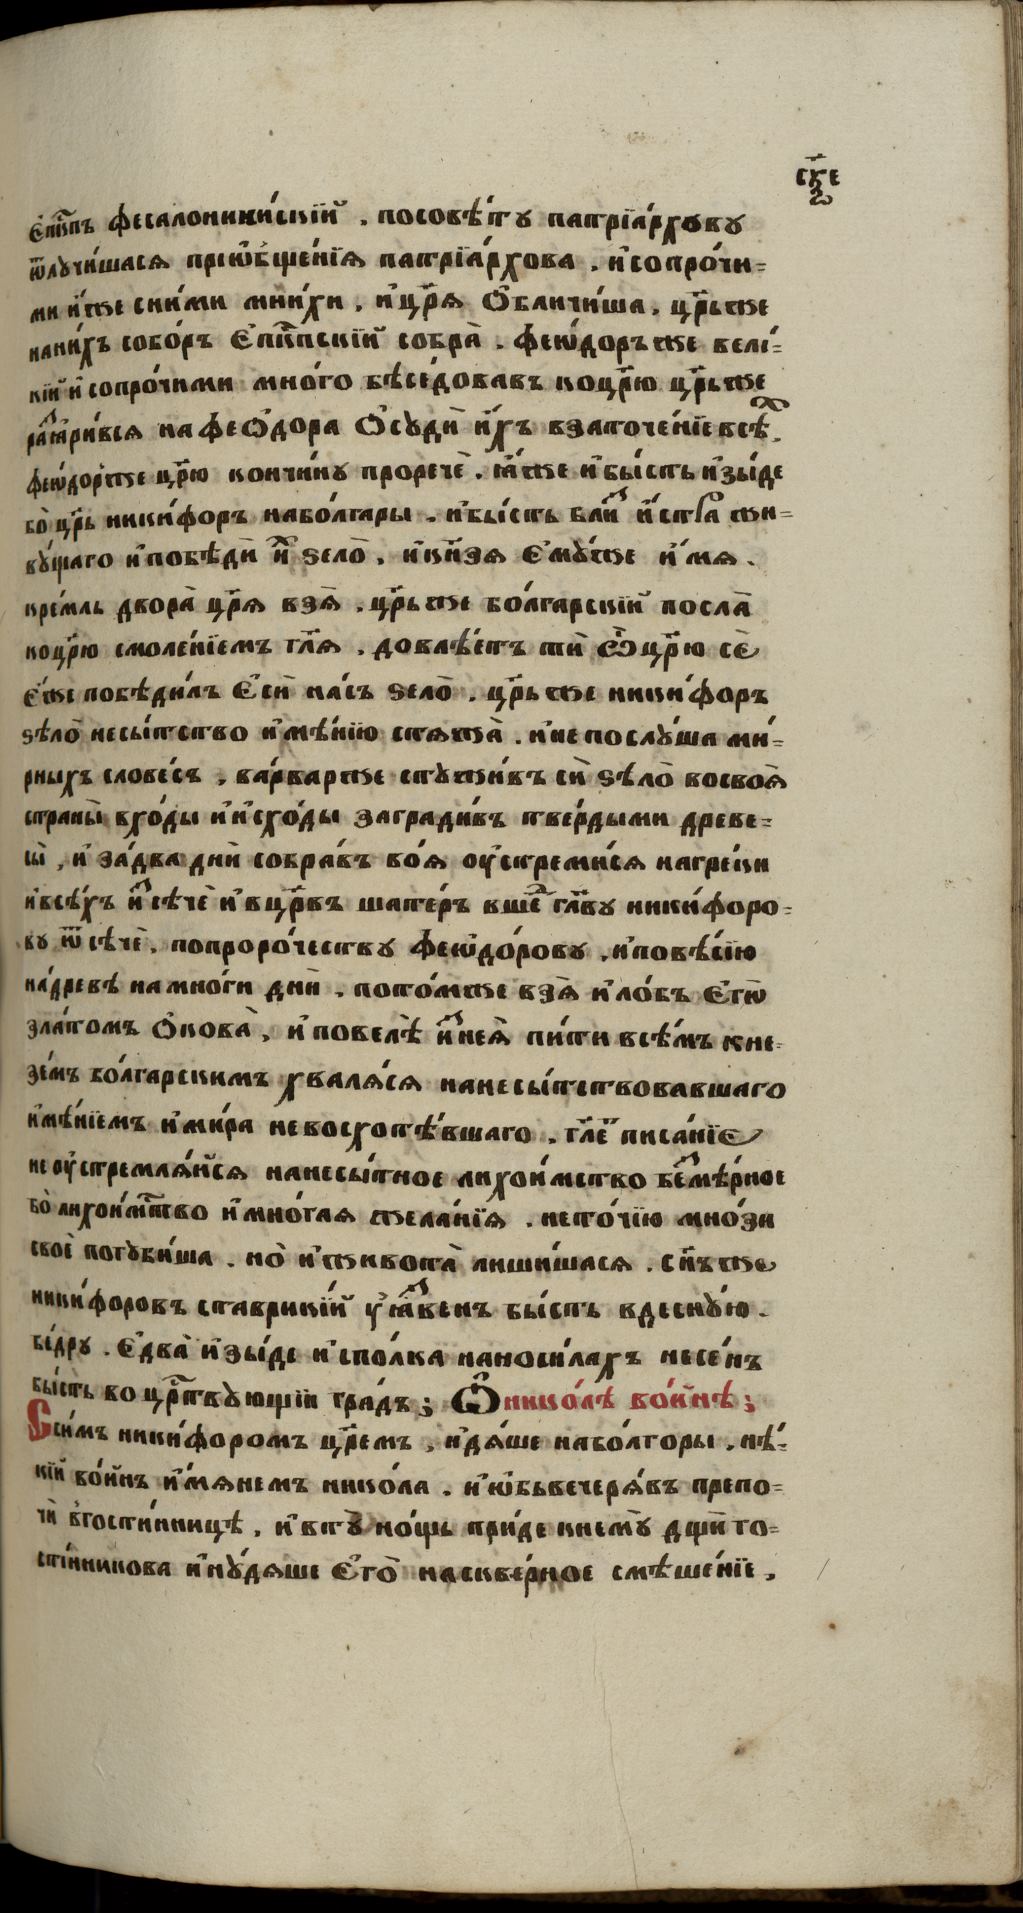 ске
є҆пⷭ҇кпъ фесалоники́скїй . посовѣ́ту патрїа́рхову
ѿлучи́шася прїѡ҆бщє́нїя патрїа́рхова . и҆сопро́чи=
ми и҆́же сни́ми мнихи . и҆цр҃я ѻ҆бличи́ша . цр҃ьже
нани́хъ собо́ръ є҆пⷭ҇кпскїй собра̀ . феѡ́доръже вели́=
кїй и҆сопро́чими мно́го бѣсе́довавъ коцр҃ю цр҃ьже
раз̾ѧри́вся нафеѻ́дора ѻ҆сꙋдѝ и҆́хъ взаточе́нїе всѣⷯ.
феѡ́доръже цр҃ю кончи́ну проречѐ . ꙗ҆́же и҆бы́сть и҆зы́де
бо̀ цр҃ь ники́форъ набо́лгары . и҆бы́сть блиⷥ и҆́стра жи=
вꙋ́щаго и҆побѣдѝ иⷯ ѕело̀ . и҆кн҃зя є҆мꙋ́же и҆́мя .
кре́мль двора̀ цр҃я взя̀ . цр҃ьже бо́лгарскїй посла̀
коцр҃ю смоле́нїемъ гл҃я . довлѣ́етъ тѝ ѽцр҃ю сѐ
є҆́же побѣди́лъ є҆сѝ на́съ ѕело̀ . цр҃ьже ники́форъ
ѕѣло̀ несы́тство и҆мѣ́нїю стяжа̀ . и҆непослꙋ́ша ми́=
рныхъ слове́съ , ва́рварже стꙋжи́въ сѝ ѕѣло̀ восвоя̀
страны̀ вхо́ды и҆и҆схо́ды загради́въ тве́рдыми древе=
сы̀ , и҆ за́два днѝ собра́въ во́я оу҆стреми́ся нагре́ки
и҆всѣ́хъ и҆ⷥсѣчѐ и҆вцр҃въ шате́р вшеⷣ гл҃ву ники́форо=
ву ѿсѣчѐ . попроро́чествꙋ феѡдо́рову . и҆повѣ́сїю
на́древѣ намно́ги днѝ . пото́мже взя̀ и҆ло́бъ є҆гѡ̀
зла́томъ ѻ҆кова̀ , и҆повелѣ̀ и҆ⷥнея̀ пи́ти всѣ́мъ кне=
зе́мъ бо́лгарскимъ хваля́ся нанесы́тствовавшаго
и҆мѣ́нїемъ и҆ми́ра невосхотѣ́вшаго . гл҃еⷮ писа́нїе
неоу҆стремля́йся нанесы́тное лихои́мство беⷥмѣ́рное
бо̀ лихои́мⷭ҇тво и҆мно́гая жела́нїя . нето́чїю мно́зи
своѐ погꙋби́ша . но̀ и҆живота̀ лиши́шася . сн҃ъже
ники́форовъ ставрикїй ꙋ҆ꙗ҆ⷥвенъ бы́сть вдеснꙋ́ю .
бе́дру . є҆два̀ и҆зы́де и҆спо́лка нановила́хъ несе́нъ
бы́сть воцрⷭ҇твꙋющїи гра́дъ ; Ѽнико́лѣ во́инѣ ;
Ссимъ ники́форомъ цр҃емъ , и҆дя́ше набо́лгоры . нѣ́=
кїй во́инъ и҆мянемъ нико́ла . и҆ѡ҆бьвечеря́въ препо=
чѝ вгости́нницѣ , и҆втꙋ̀ но́щь прїи́де кнемꙋ̀ дщѝ го=
сти́нникова и҆нꙋ́дяше є҆го̀ насквє́рное смѣше́нїе .